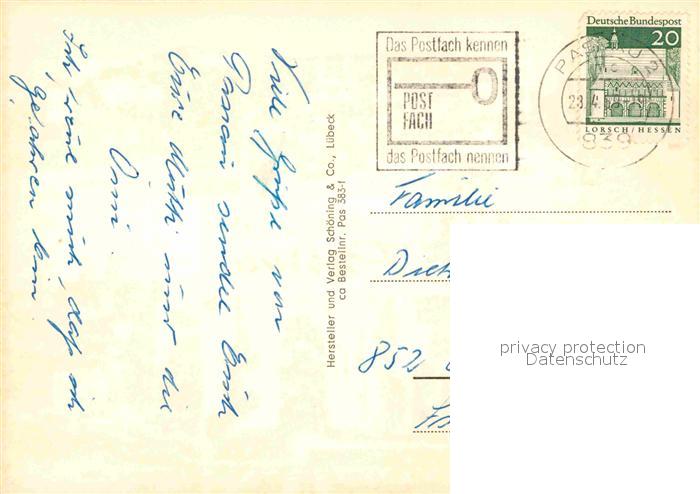 Viele Grüße von
Passau sendet Euch
Eure Mutti und die
Omi.
Ich freue mich, daß ich
gefahren bin.
Hersteller und Verlag Schöning & Co., Lübeck
ca Bestellnr. Pas 383-f
Das Postfach kennen
POST
FACH
das Postfach nennen
PASSAU 2
23.4.
839
Deutsche Bundespost
20
LORSCH/HESSEN
Familie
852
privacy protection
Datenschutz